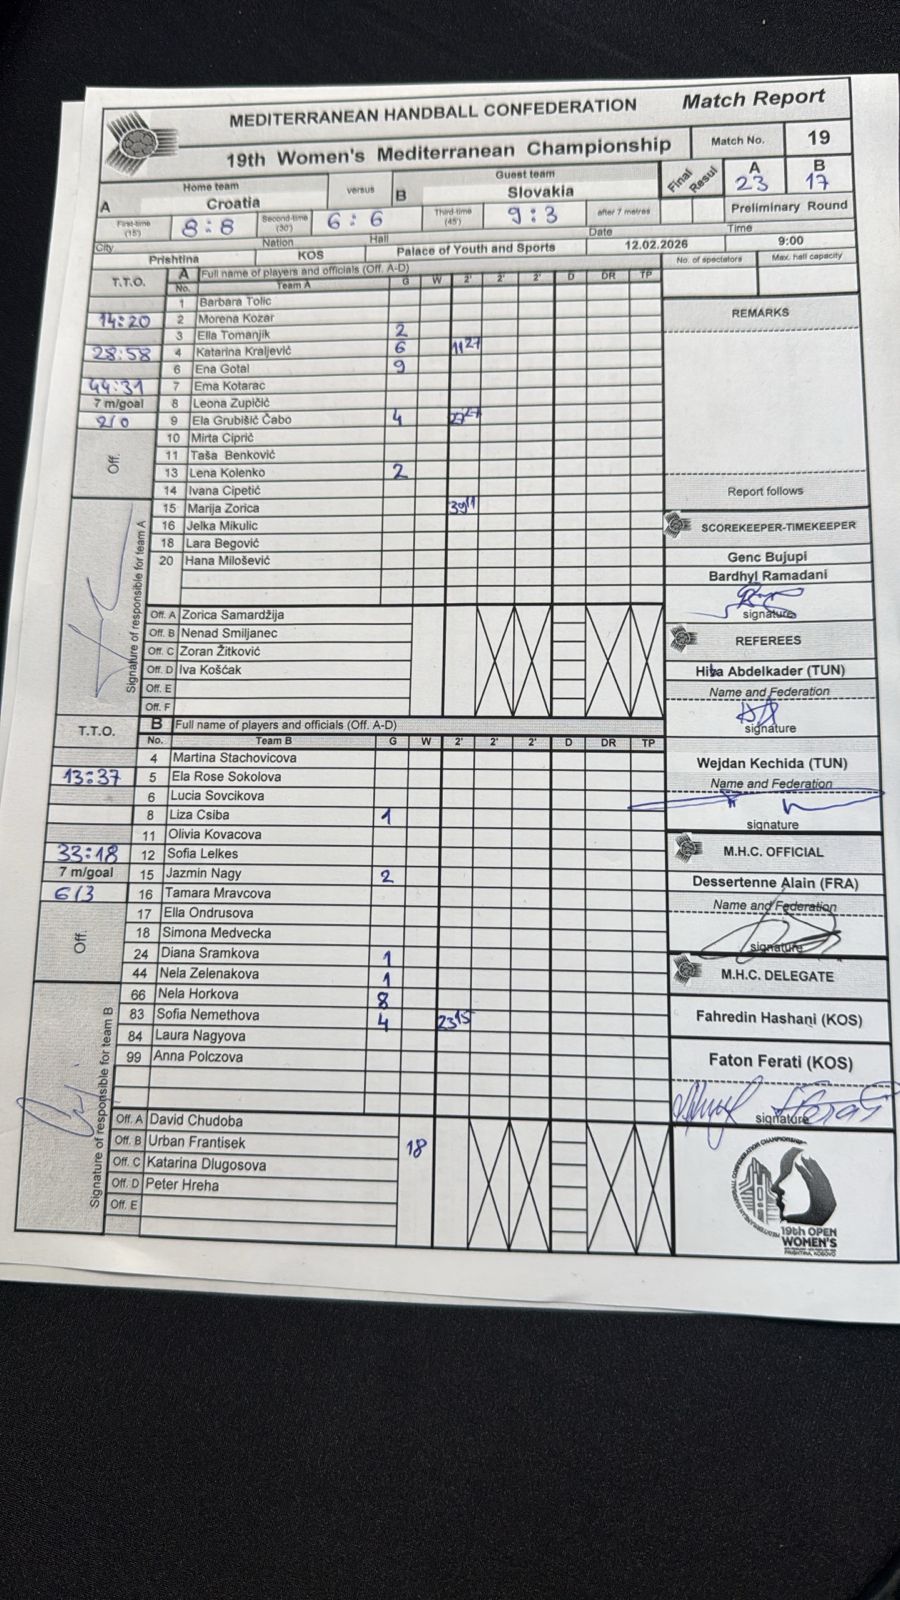 MEDITERRANEAN HANDBALL CONFEDERATION Match Report
19th Women's Mediterranean Championship Match No. 19
Home team versus Guest team Final Resul A B
A Croatia B Slovakia 23 17
First-time (15') 8:8 Second-time (30') 6:6 Third-time (45') 9:3 after 7 metres Preliminary Round
City Nation Hall Date Time
Prishtina KOS Palace of Youth and Sports 12.02.2026 9:00
No. of spectators Max. hall capacity
T.T.O. A Full name of players and officials (Off. A-D)
No. Team A G W 2' 2' 2' D DR TP
1 Barbara Tolic
REMARKS
14:20 2 Morena Kozar
3 Ella Tomanjik 2
28:58 4 Katarina Kraljević 6 11 27
6 Ena Gotal 9
44:31 7 Ema Kotarac
7 m/goal 8 Leona Zupičić
2/0 9 Ela Grubišić Čabo 4 27 27
10 Mirta Ciprić
Off. 11 Taša Benković
13 Lena Kolenko 2
14 Ivana Cipetić
Report follows
15 Marija Zorica 39 11
16 Jelka Mikulic
18 Lara Begović
20 Hana Milošević
Signature of responsible for team A
SCOREKEEPER-TIMEKEEPER
Genc Bujupi
Bardhyl Ramadani
signature
Off. A Zorica Samardžija
Off. B Nenad Smiljanec
Off. C Zoran Žitković
Off. D Iva Košćak
Off. E
Off. F
REFEREES
Hiba Abdelkader (TUN)
Name and Federation
signature
T.T.O. B Full name of players and officials (Off. A-D)
No. Team B G W 2' 2' 2' D DR TP
4 Martina Stachovicova
Wejdan Kechida (TUN)
13:37 5 Ela Rose Sokolova
Name and Federation
6 Lucia Sovcikova
8 Liza Csiba 1
signature
11 Olivia Kovacova
33:18 12 Sofia Lelkes
M.H.C. OFFICIAL
7 m/goal 15 Jazmin Nagy 2
Dessertenne Alain (FRA)
6/3 16 Tamara Mravcova
Name and Federation
17 Ella Ondrusova
Off. 18 Simona Medvecka
signature
24 Diana Sramkova 1
44 Nela Zelenakova 1
M.H.C. DELEGATE
66 Nela Horkova 8
83 Sofia Nemethova 4 23 15
Fahredin Hashani (KOS)
84 Laura Nagyova
99 Anna Polczova
Faton Ferati (KOS)
signature
Signature of responsible for team B
Off. A David Chudoba
Off. B Urban Frantisek 18
Off. C Katarina Dlugosova
Off. D Peter Hreha
Off. E
19th OPEN
WOMEN'S